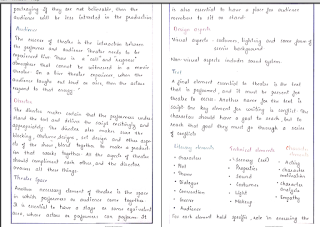 portraying if they are not believable, then the
audience will be less interested in the production
Audience
The success of theatre is the interaction between
the performer and audience Theatre needs to be
experienced live. There is a "call and response"
atmosphere that cannot be witnessed in a movie
theatre. In a live theatre experience, when the
audience laughs out loud or cries, then the actors
respond to that energy
Director
The director makes certain that the performers under
stand the text and deliver the script excitingly and
appropriately. The director also makes sure the
blocking, costume designs, set design and other aspe
cts of the show blend together to make a product
ion that works together. As the aspects of theatre
should compliment each other, and the director
ensures all these things.
Theatre Space
Another necessary element of theatre is the space
in which performers to audience come together.
It is essential to have a stage or some equivalent
here, where actors or performers can perform. It
is also essential to have a place for audience
members to sit or stand
Design aspects
Visual aspects - costumes, lighting and some form of
scenic background
Non-visual aspects include sound system
Text
A final element essential to theatre is the text
that is performed, and it must be present for
theatre to occur. Another name for the text is
script the key element for writing is conflict the
characters should have a goal to reach, but to
reach that goal they must go through a series
of conflicts
Literary elements
Technical elements
• Character
• Plot
• Theme
• Dialogue
• Convention
• Genre
• Audience
• Scenery (set)
• Properties
• Sound
• Costumes
• Light
• Makeup
• Acting
• Character
• Character
analysis
• Empathy
For each element hold specific role in assuring the